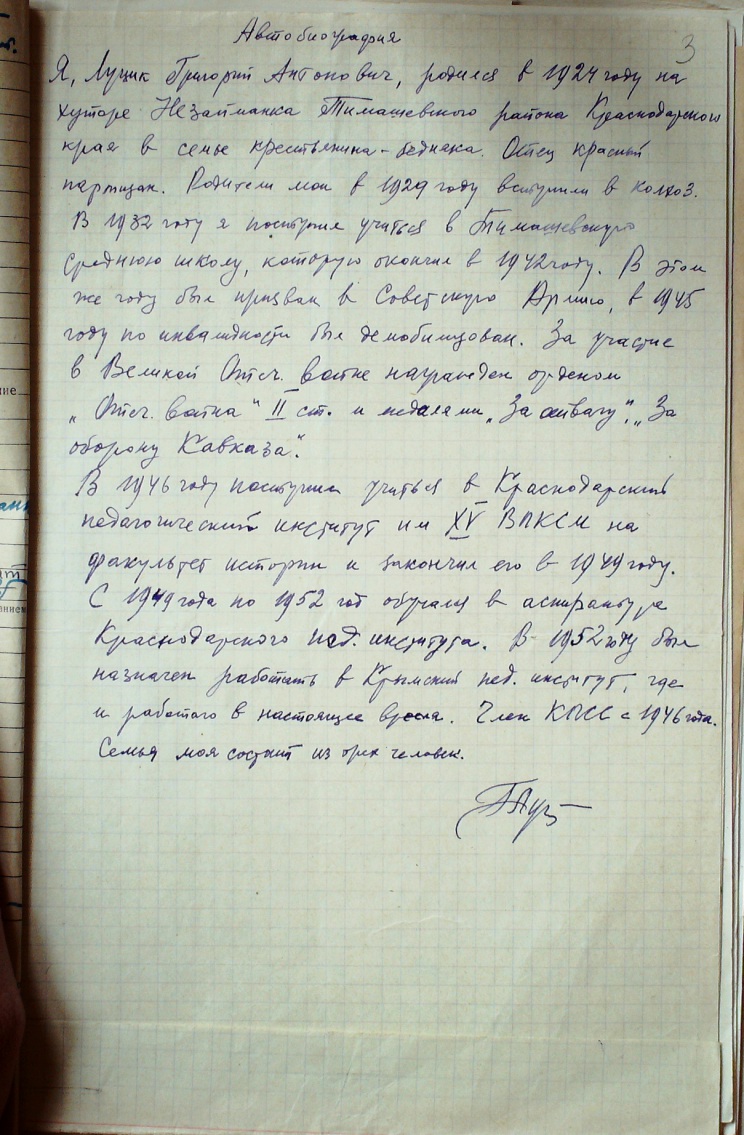 Автобиография
3
Я, Луцик Григорий Антонович, родился в 1924 году на
хуторе Незаймановка Тимашевского района Краснодарского
края в семье крестьянина-бедняка. Отец красный
партизан. Родители мои в 1929 году вступили в колхоз.
В 1932 году я поступил учиться в Тимашевскую
среднюю школу, которую окончил в 1942 году. В этом
же году был призван в Советскую Армию, в 1945
году по инвалидности был демобилизован. За участие
в Великой Отеч. войне награжден орденом
„Отеч. война" II ст. и медалями „За отвагу", „За
оборону Кавказа".
В 1946 году поступил учиться в Краснодарский
педагогический институт им XV ВЛКСМ на
факультет истории и закончил его в 1949 году.
С 1949 года по 1952 год обучался в аспирантуре
Краснодарского пед. института. В 1952 году был
назначен работать в Крымский пед. институт, где
и работаю в настоящее время. Член КПСС с 1946 года.
Семья моя состоит из трех человек.